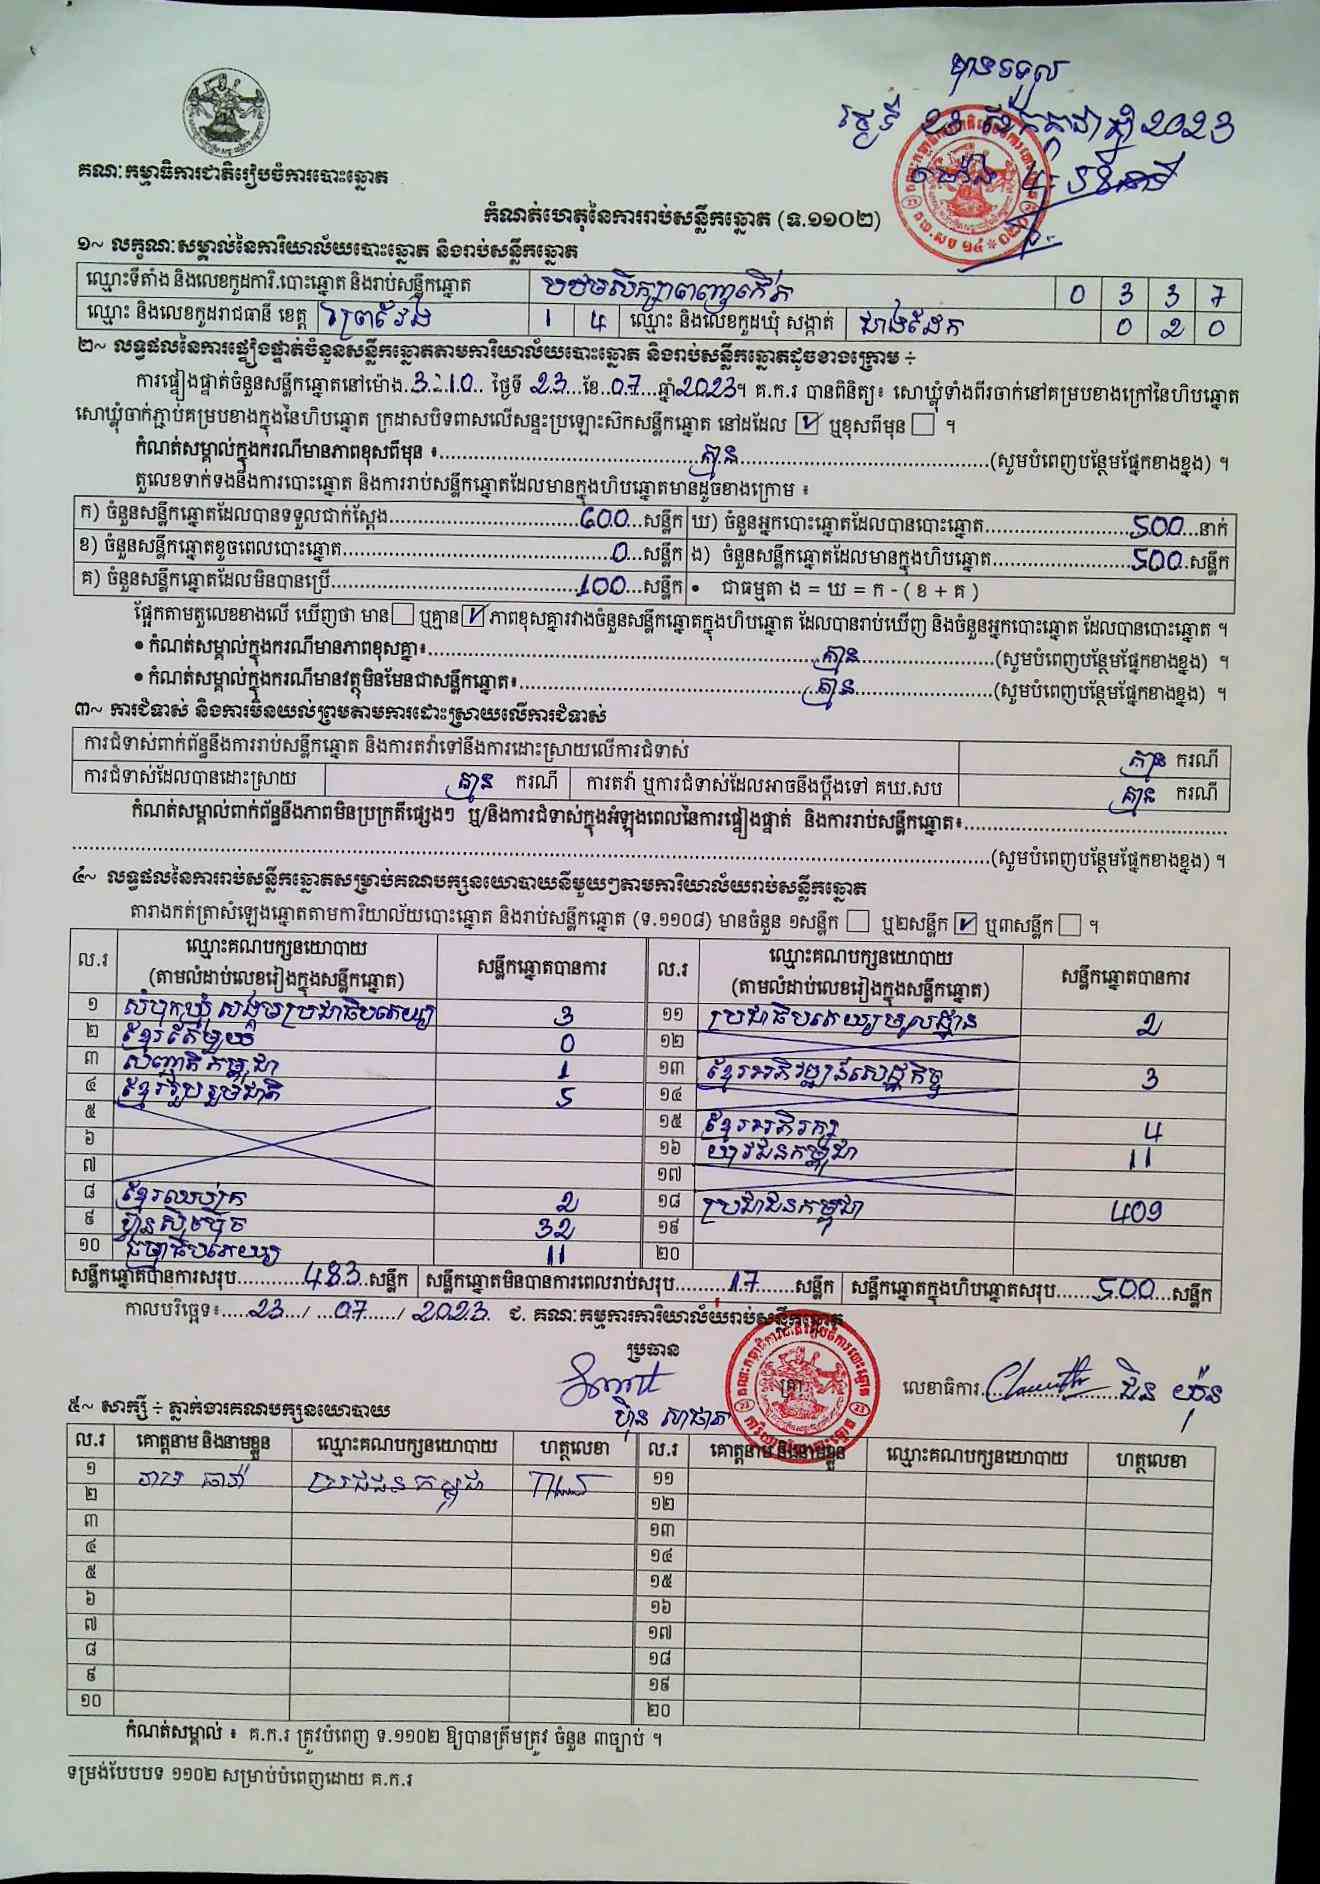 បានទទួល
ថ្ងៃទី 23 ខែកក្កដា ឆ្នាំ 2023
គណៈកម្មាធិការជាតិរៀបចំការបោះឆ្នោត
កំណត់ហេតុនៃការរាប់សន្លឹកឆ្នោត (ទ.១១០២)
១~ លក្ខណៈសម្គាល់នៃការិយាល័យបោះឆ្នោត និងរាប់សន្លឹកឆ្នោត
ឈ្មោះទីតាំង និងលេខកូដការិ.បោះឆ្នោត និងរាប់សន្លឹកឆ្នោត បឋមសិក្សាពញាកើត 0 3 3 7
ឈ្មោះ និងលេខកូដរាជធានី ខេត្ត ព្រៃវែង 1 4 ឈ្មោះ និងលេខកូដឃុំ សង្កាត់ ជាងដែក 0 2 0
២~ លទ្ធផលនៃការផ្ទៀងផ្ទាត់ចំនួនសន្លឹកឆ្នោតតាមការិយាល័យបោះឆ្នោត និងរាប់សន្លឹកឆ្នោតដូចខាងក្រោម ÷
ការផ្ទៀងផ្ទាត់ចំនួនសន្លឹកឆ្នោតនៅម៉ោង.3:10.. ថ្ងៃទី 23...ខែ..07...ឆ្នាំ2023។ គ.ក.រ បានពិនិត្យ៖ សោឃ្លុំទាំងពីរចាក់នៅគម្របខាងក្រៅនៃហិបឆ្នោត
សោឃ្លុំចាក់ភ្ជាប់គម្របខាងក្នុងនៃហិបឆ្នោត ក្រដាសបិទពាសលើសន្ទះប្រឡោះស៊កសន្លឹកឆ្នោត នៅដដែល ☑ ឬខុសពីមុន ☐ ។
កំណត់សម្គាល់ក្នុងករណីមានភាពខុសពីមុន ៖........គ្មាន........(សូមបំពេញបន្ថែមផ្នែកខាងខ្នង) ។
តួលេខទាក់ទងនឹងការបោះឆ្នោត និងការរាប់សន្លឹកឆ្នោតដែលមានក្នុងហិបឆ្នោតមានដូចខាងក្រោម ៖
ក) ចំនួនសន្លឹកឆ្នោតដែលបានទទួលជាក់ស្តែង........600...សន្លឹក ឃ) ចំនួនអ្នកបោះឆ្នោតដែលបានបោះឆ្នោត........500...នាក់
ខ) ចំនួនសន្លឹកឆ្នោតខូចពេលបោះឆ្នោត........0...សន្លឹក ង) ចំនួនសន្លឹកឆ្នោតដែលមានក្នុងហិបឆ្នោត........500.សន្លឹក
គ) ចំនួនសន្លឹកឆ្នោតដែលមិនបានប្រើ........100...សន្លឹក • ជាធម្មតា ង = ឃ = ក - ( ខ + គ )
ផ្អែកតាមតួលេខខាងលើ ឃើញថា មាន☐ ឬគ្មាន☑ ភាពខុសគ្នារវាងចំនួនសន្លឹកឆ្នោតក្នុងហិបឆ្នោត ដែលបានរាប់ឃើញ និងចំនួនអ្នកបោះឆ្នោត ដែលបានបោះឆ្នោត ។
• កំណត់សម្គាល់ក្នុងករណីមានភាពខុសគ្នា៖........គ្មាន........(សូមបំពេញបន្ថែមផ្នែកខាងខ្នង) ។
• កំណត់សម្គាល់ក្នុងករណីមានវត្ថុមិនមែនជាសន្លឹកឆ្នោត៖........គ្មាន........(សូមបំពេញបន្ថែមផ្នែកខាងខ្នង) ។
៣~ ការជំទាស់ និងការមិនយល់ព្រមតាមការដោះស្រាយលើការជំទាស់
ការជំទាស់ពាក់ព័ន្ធនឹងការរាប់សន្លឹកឆ្នោត និងការតវ៉ាទៅនឹងការដោះស្រាយលើការជំទាស់ គ្មាន ករណី
ការជំទាស់ដែលបានដោះស្រាយ គ្មាន ករណី ការតវ៉ា ឬការជំទាស់ដែលអាចនឹងប្តឹងទៅ គឃ.សប គ្មាន ករណី
កំណត់សម្គាល់ពាក់ព័ន្ធនឹងភាពមិនប្រក្រតីផ្សេងៗ ឬ/និងការជំទាស់ក្នុងអំឡុងពេលនៃការផ្ទៀងផ្ទាត់ និងការរាប់សន្លឹកឆ្នោត៖........
........(សូមបំពេញបន្ថែមផ្នែកខាងខ្នង) ។
៤~ លទ្ធផលនៃការរាប់សន្លឹកឆ្នោតសម្រាប់គណបក្សនយោបាយនីមួយៗតាមការិយាល័យរាប់សន្លឹកឆ្នោត
តារាងកត់ត្រាសំឡេងឆ្នោតតាមការិយាល័យបោះឆ្នោត និងរាប់សន្លឹកឆ្នោត (ទ.១១០៨) មានចំនួន ១សន្លឹក ☐ ឬ២សន្លឹក ☑ ឬ៣សន្លឹក ☐ ។
ល.រ ឈ្មោះគណបក្សនយោបាយ (តាមលំដាប់លេខរៀងក្នុងសន្លឹកឆ្នោត) សន្លឹកឆ្នោតបានការ ល.រ ឈ្មោះគណបក្សនយោបាយ (តាមលំដាប់លេខរៀងក្នុងសន្លឹកឆ្នោត) សន្លឹកឆ្នោតបានការ
១ សំបុកឃ្មុំសង្គមប្រជាធិបតេយ្យ 3 ១១ ប្រជាធិបតេយ្យមូលដ្ឋាន 2
២ ខ្មែរតែមួយ 0 ១២
៣ សញ្ជាតិកម្ពុជា 1 ១៣ ខ្មែរអភិវឌ្ឍន៍សេដ្ឋកិច្ច 3
៤ ខ្មែររួបរួមជាតិ 5 ១៤
៥ ១៥ ខ្មែរអភិរក្ស 4
៦ ១៦ យុវជនកម្ពុជា 11
៧ ១៧
៨ ខ្មែរឈប់ក្រ 2 ១៨ ប្រជាជនកម្ពុជា 409
៩ ហ៊្វុនស៊ិនប៉ិច 32 ១៩
១០ ធម្មាធិបតេយ្យ 11 ២០
សន្លឹកឆ្នោតបានការសរុប........483..សន្លឹក សន្លឹកឆ្នោតមិនបានការពេលរាប់សរុប........17........សន្លឹក សន្លឹកឆ្នោតក្នុងហិបឆ្នោតសរុប........500...សន្លឹក
កាលបរិច្ឆេទ៖.....23.../...07....../ 2023 ជ. គណៈកម្មការការិយាល័យរាប់សន្លឹកឆ្នោត
ប្រធាន
ត្រា
លេខាធិការ........ ជិន យ៉ុន
ប៊ិន សាផាត
៥~ សាក្សី ÷ ភ្នាក់ងារគណបក្សនយោបាយ
ល.រ គោត្តនាម និងនាមខ្លួន ឈ្មោះគណបក្សនយោបាយ ហត្ថលេខា ល.រ គោត្តនាម និងនាមខ្លួន ឈ្មោះគណបក្សនយោបាយ ហត្ថលេខា
១ ប្រជាជនកម្ពុជា ១១
២ ១២
៣ ១៣
៤ ១៤
៥ ១៥
៦ ១៦
៧ ១៧
៨ ១៨
៩ ១៩
១០ ២០
កំណត់សម្គាល់ ៖ គ.ក.រ ត្រូវបំពេញ ទ.១១០២ ឱ្យបានត្រឹមត្រូវ ចំនួន ៣ច្បាប់ ។
ទម្រង់បែបបទ ១១០២ សម្រាប់បំពេញដោយ គ.ក.រ